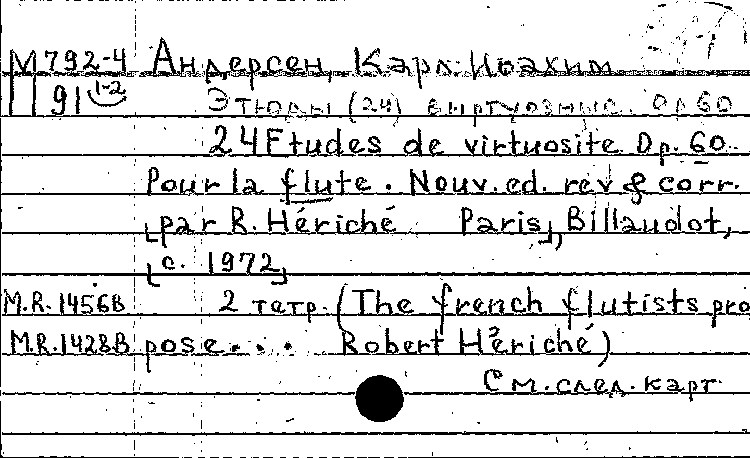 М792-4 Андерсен, Карл Иоахим
П 91 1-2 Этюды (24) виртуозные. Ор 60
24 Etudes de virtuosite Op. 60.
Pour la flute. Nouv. ed. rev & corr.
[par R. Hériché Paris], Billaudot,
[c. 1972]
M.R. 1456B 2 тетр. (The french flutists pro
M.R. 1428B pose... Robert Hériché)
См. след. карт.